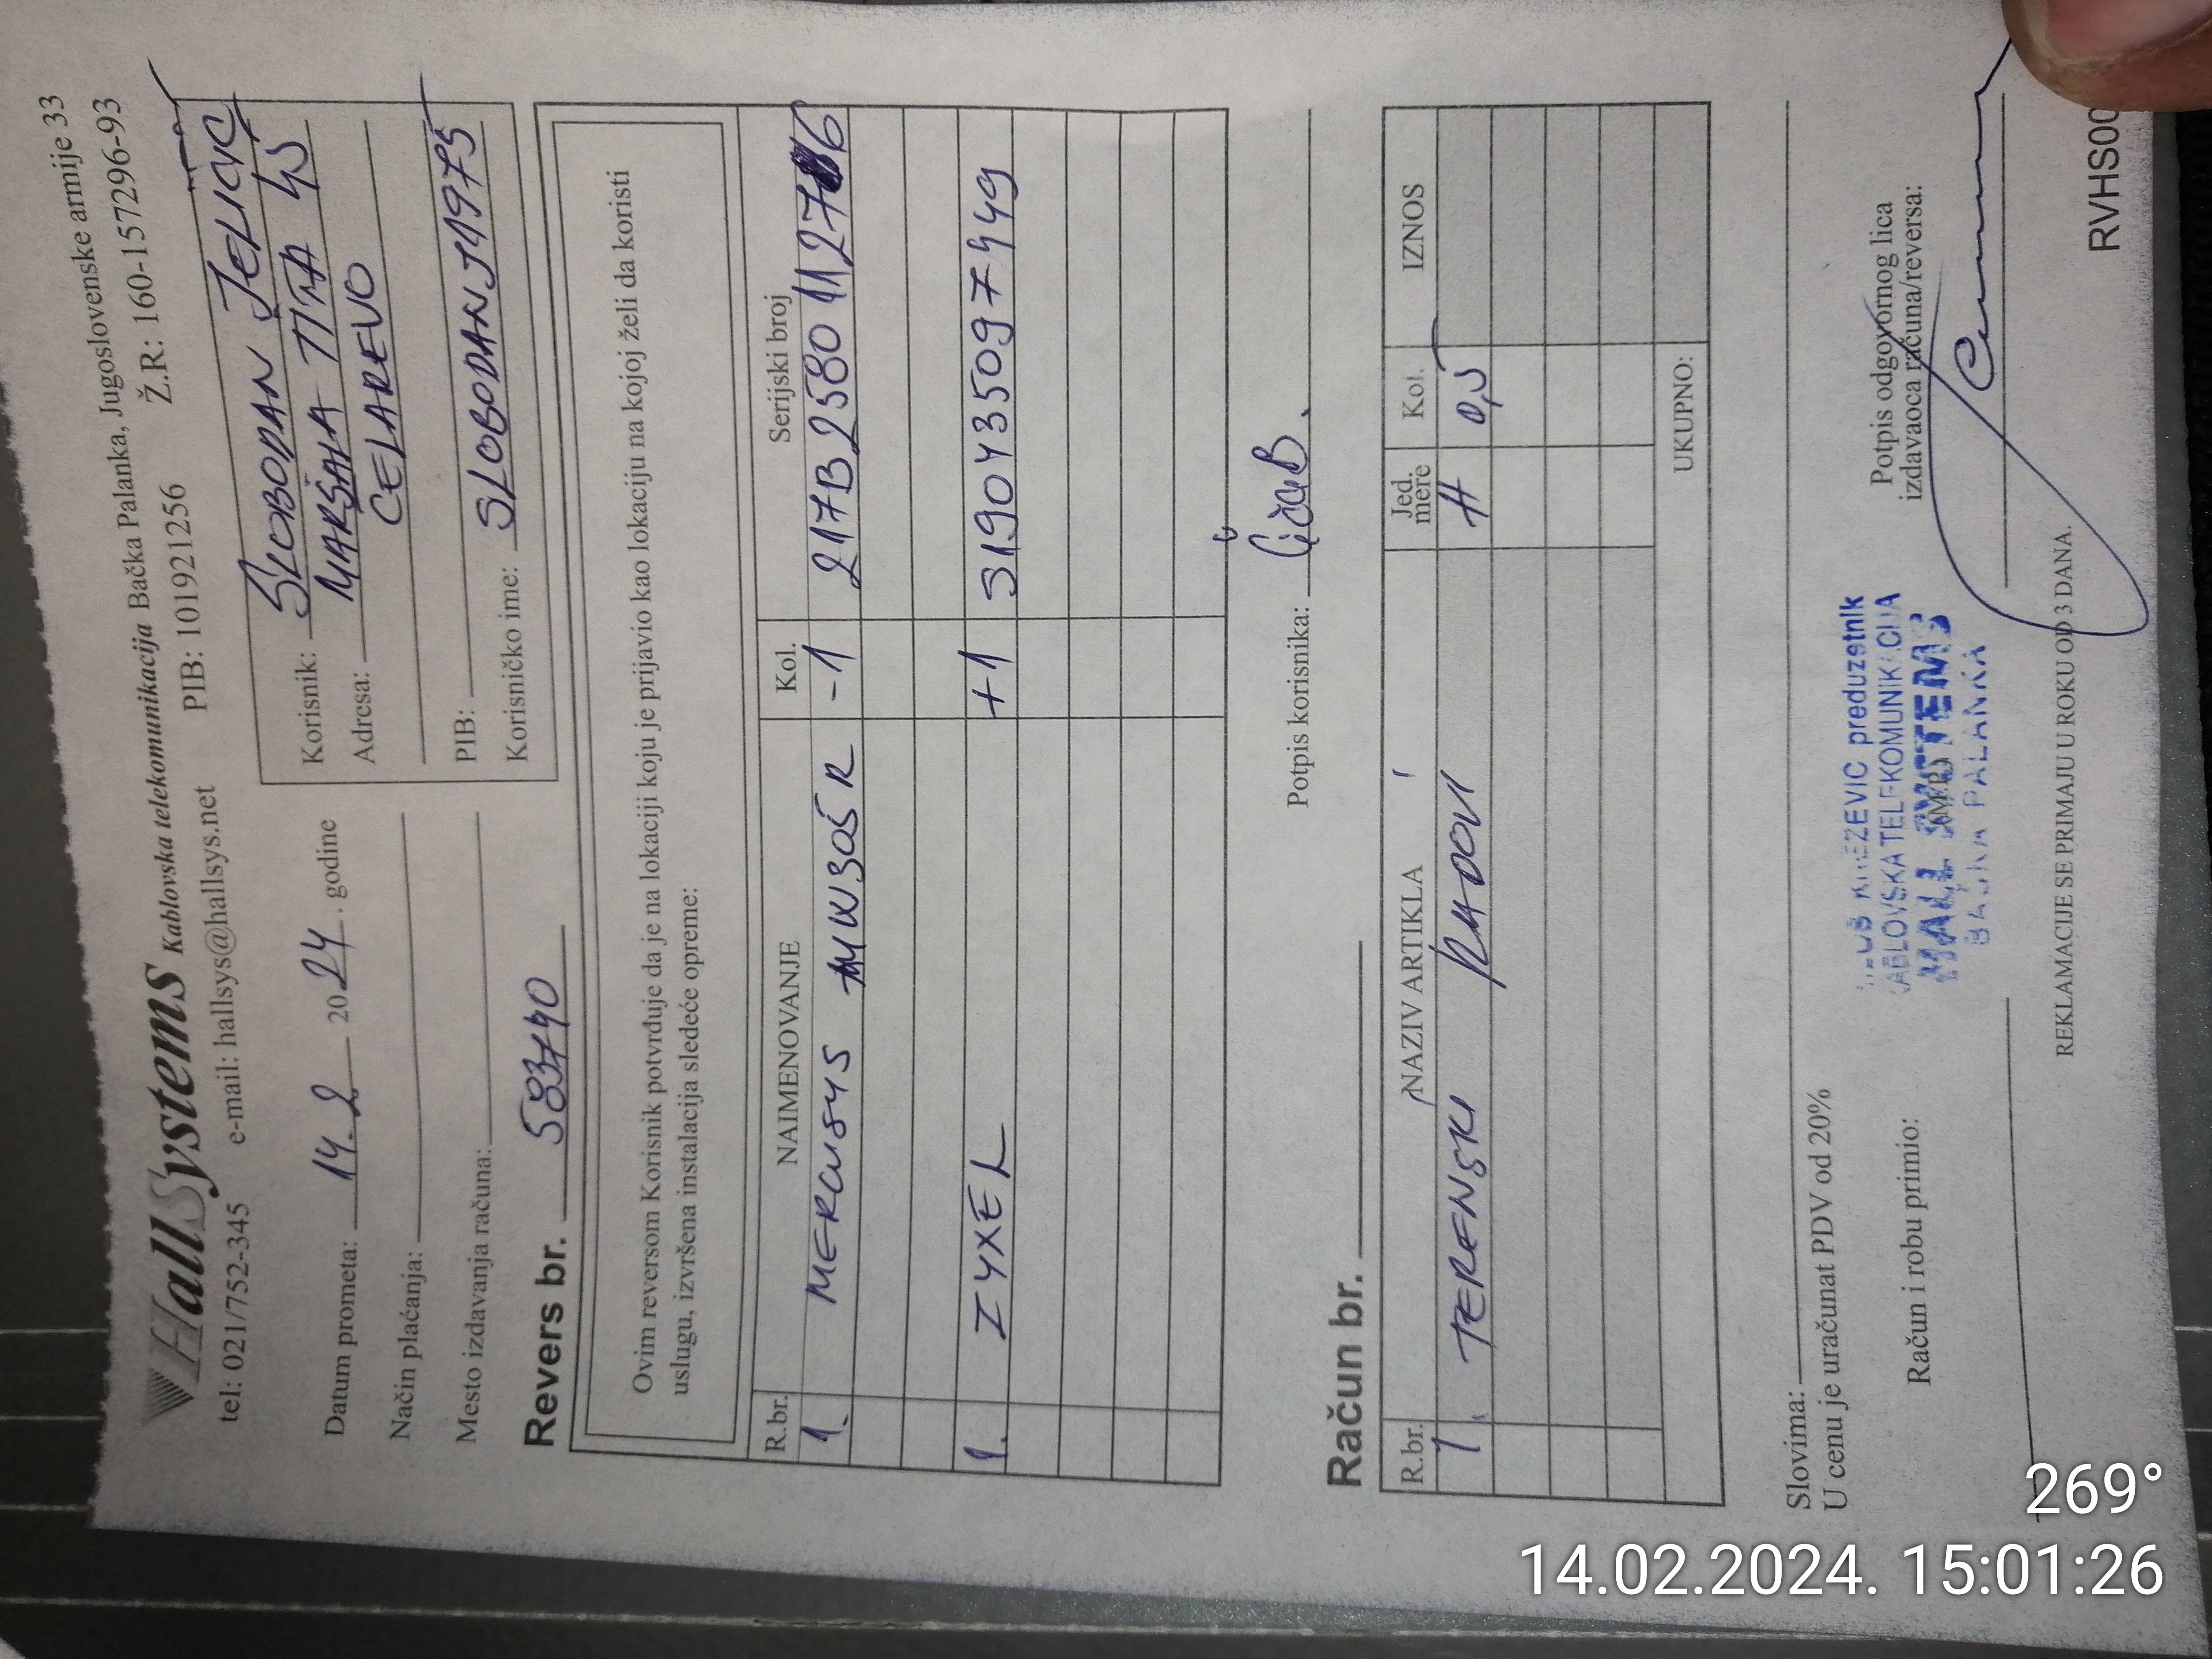 HallSystems Kablovska telekomunikacija Bačka Palanka, Jugoslovenske armije 33
tel: 021/752-345 e-mail: hallsys@hallsys.net PIB: 101921256 Ž.R: 160-157296-93
Datum prometa: 14.2 2024. godine
Način plaćanja:
Mesto izdavanja računa:
Korisnik: SLOBODAN JELIĆ
Adresa: MARŠALA TITA 45
ČELAREVO
PIB:
Korisničko ime: SLOBODANJ1975
Revers br. 583740
Ovim reversom Korisnik potvrđuje da je na lokaciji koju je prijavio kao lokaciju na kojoj želi da koristi
uslugu, izvršena instalacija sledeće opreme:
R.br. NAIMENOVANJE Kol. Serijski broj
1. MERCUSYS MW305R -1 217B2580112776
1. ZYXEL +1 S190Y35097449
Potpis korisnika:
Račun br.
R.br. NAZIV ARTIKLA Jed. mere Kol. IZNOS
1. TERENSKI RADOVI H 0,5
UKUPNO:
Slovima:
U cenu je uračunat PDV od 20%
Račun i robu primio:
preduzetnik
KABLOVSKA TELEKOMUNIKACIJA
HALL SYSTEMS
BAČKA PALANKA
Potpis odgovornog lica
izdavaoca računa/reversa:
REKLAMACIJE SE PRIMAJU U ROKU OD 3 DANA.
RVHS00
269°
14.02.2024. 15:01:26